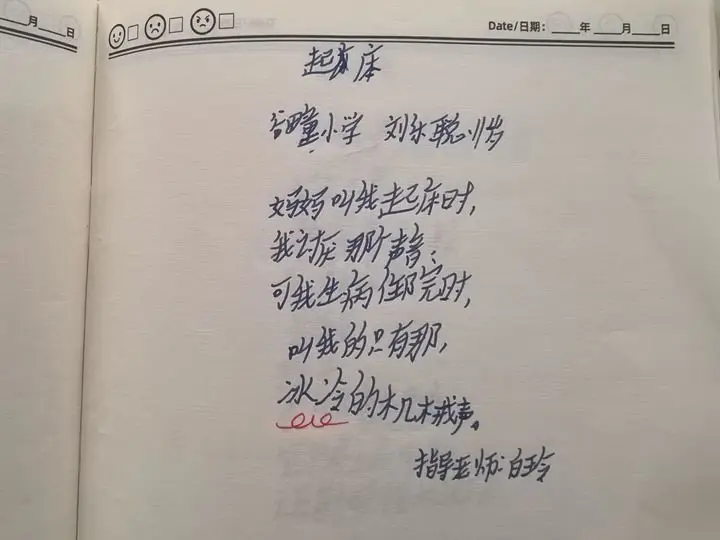 月 日
Date/日期: 年 月 日
起床
童小学 刘乐聪 岁
妈妈叫我起床时,
我讨厌那个声音;
可我生病住院时,
叫我的只有那,
冰冷的机械声。
指导老师:白玲